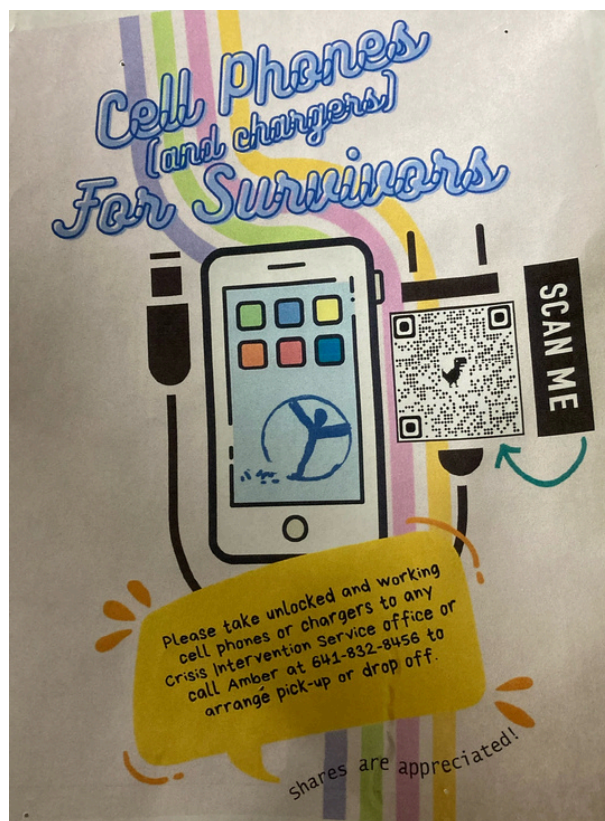 Cell Phones
(and chargers)
For Survivors
SCAN ME
Please take unlocked and working
cell phones or chargers to any
Crisis Intervention Service office or
call Amber at 641-832-8456 to
arrange pick-up or drop off.
Shares are appreciated!